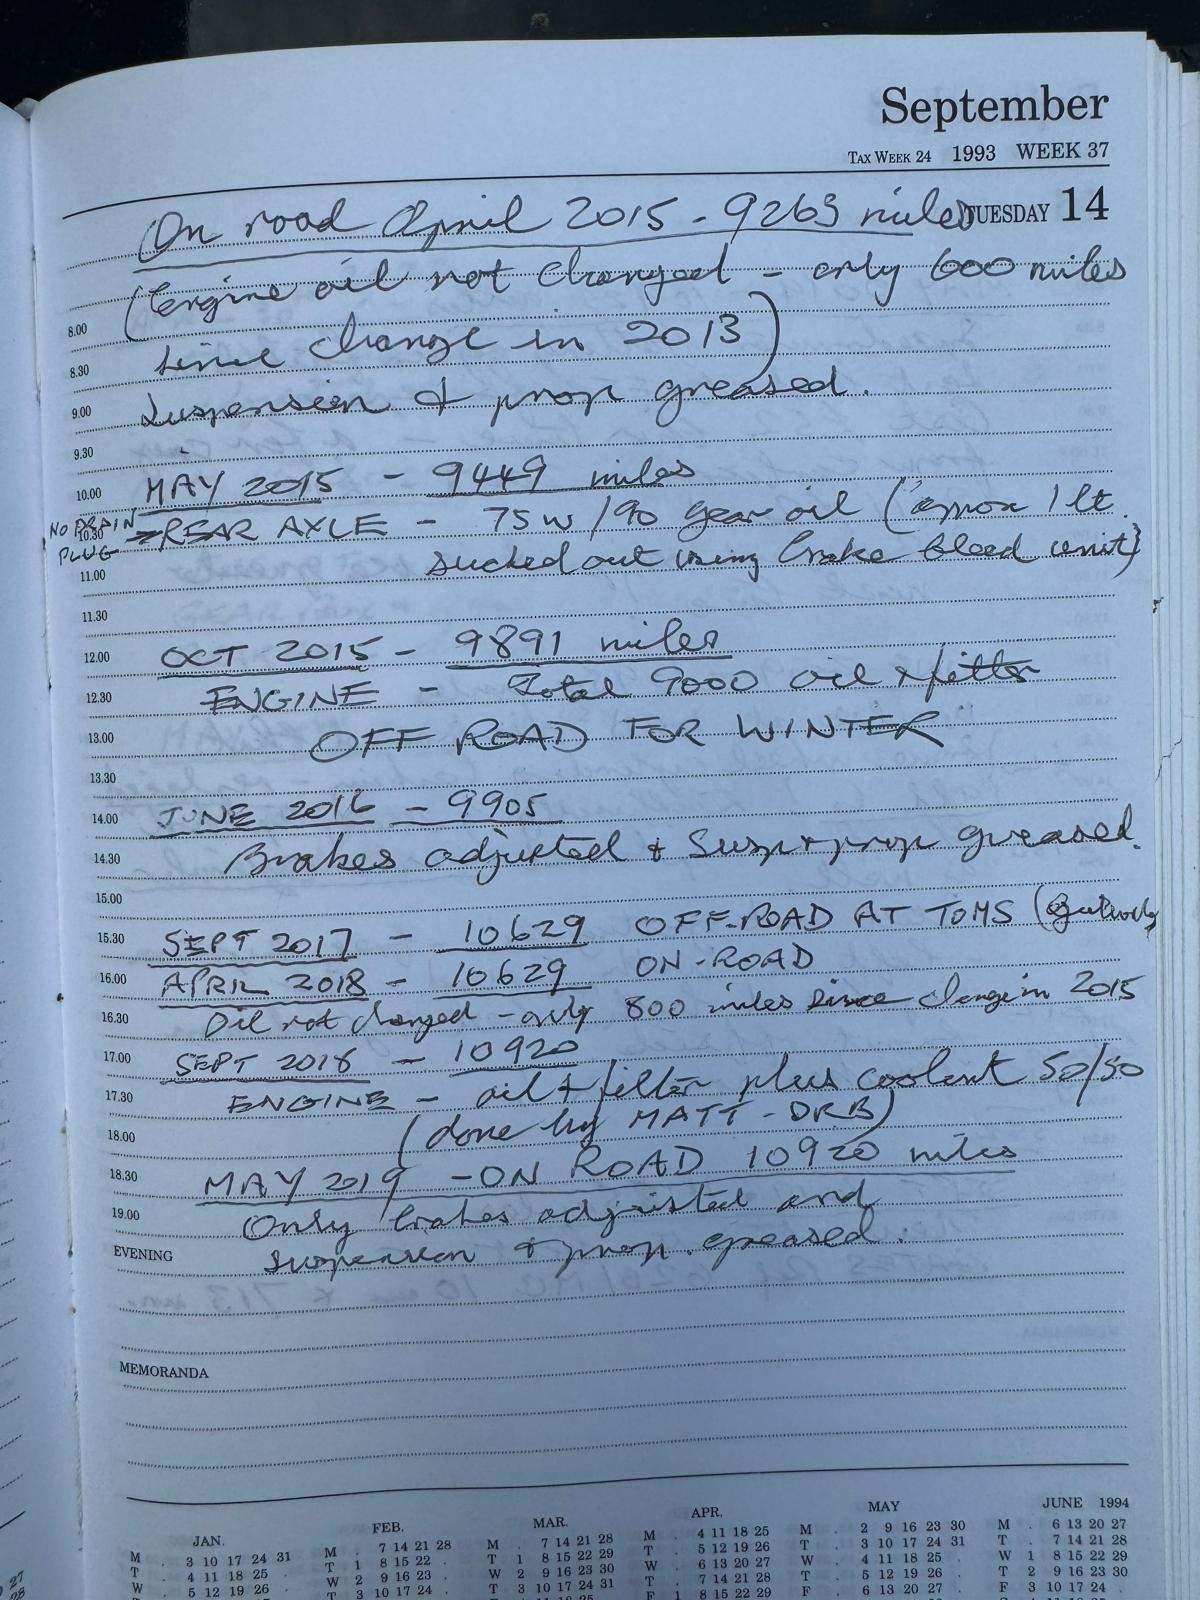 September
TAX WEEK 24 1993 WEEK 37
TUESDAY 14
On road April 2015 - 9263 miles
(Engine oil not changed - only 600 miles
8.00
since change in 2013)
8.30
Suspension & prop greased.
9.00
9.30
MAY 2015 - 9449 miles
10.00
NO DRAIN PLUG
REAR AXLE - 75W/90 gear oil (approx 1 lt.
10.30
sucked out using brake bleed unit)
11.00
11.30
OCT 2015 - 9891 miles
12.00
ENGINE - Total 9000 oil & filter
12.30
OFF ROAD FOR WINTER
13.00
13.30
JUNE 2016 - 9905
14.00
Brakes adjusted & Susp & prop greased.
14.30
15.00
SEPT 2017 - 10629 OFF-ROAD AT TOMS
15.30
APRIL 2018 - 10629 ON-ROAD
16.00
Oil not changed - only 800 miles since change in 2015
16.30
SEPT 2018 - 10920
17.00
ENGINE - oil & filter plus coolant 50/50
17.30
(done by MATT - DRB)
18.00
MAY 2019 - ON ROAD 10920 miles
18.30
Only brakes adjusted and
19.00
suspension & prop. greased.
EVENING
MEMORANDA
JAN. FEB. MAR. APR. MAY JUNE 1994
M . 3 10 17 24 31 M . 7 14 21 28 M . 7 14 21 28 M . 4 11 18 25 M . 2 9 16 23 30 M . 6 13 20 27
T . 4 11 18 25 . T 1 8 15 22 . T 1 8 15 22 29 T . 5 12 19 26 T . 3 10 17 24 31 T . 7 14 21 28
W . 5 12 19 26 . W 2 9 16 23 . W 2 9 16 23 30 W . 6 13 20 27 W . 4 11 18 25 . W 1 8 15 22 29
T 3 10 17 24 . T 3 10 17 24 31 T . 7 14 21 28 T . 5 12 19 26 . T 2 9 16 23 30
F 1 8 15 22 29 F . 6 13 20 27 . F 3 10 17 24 .